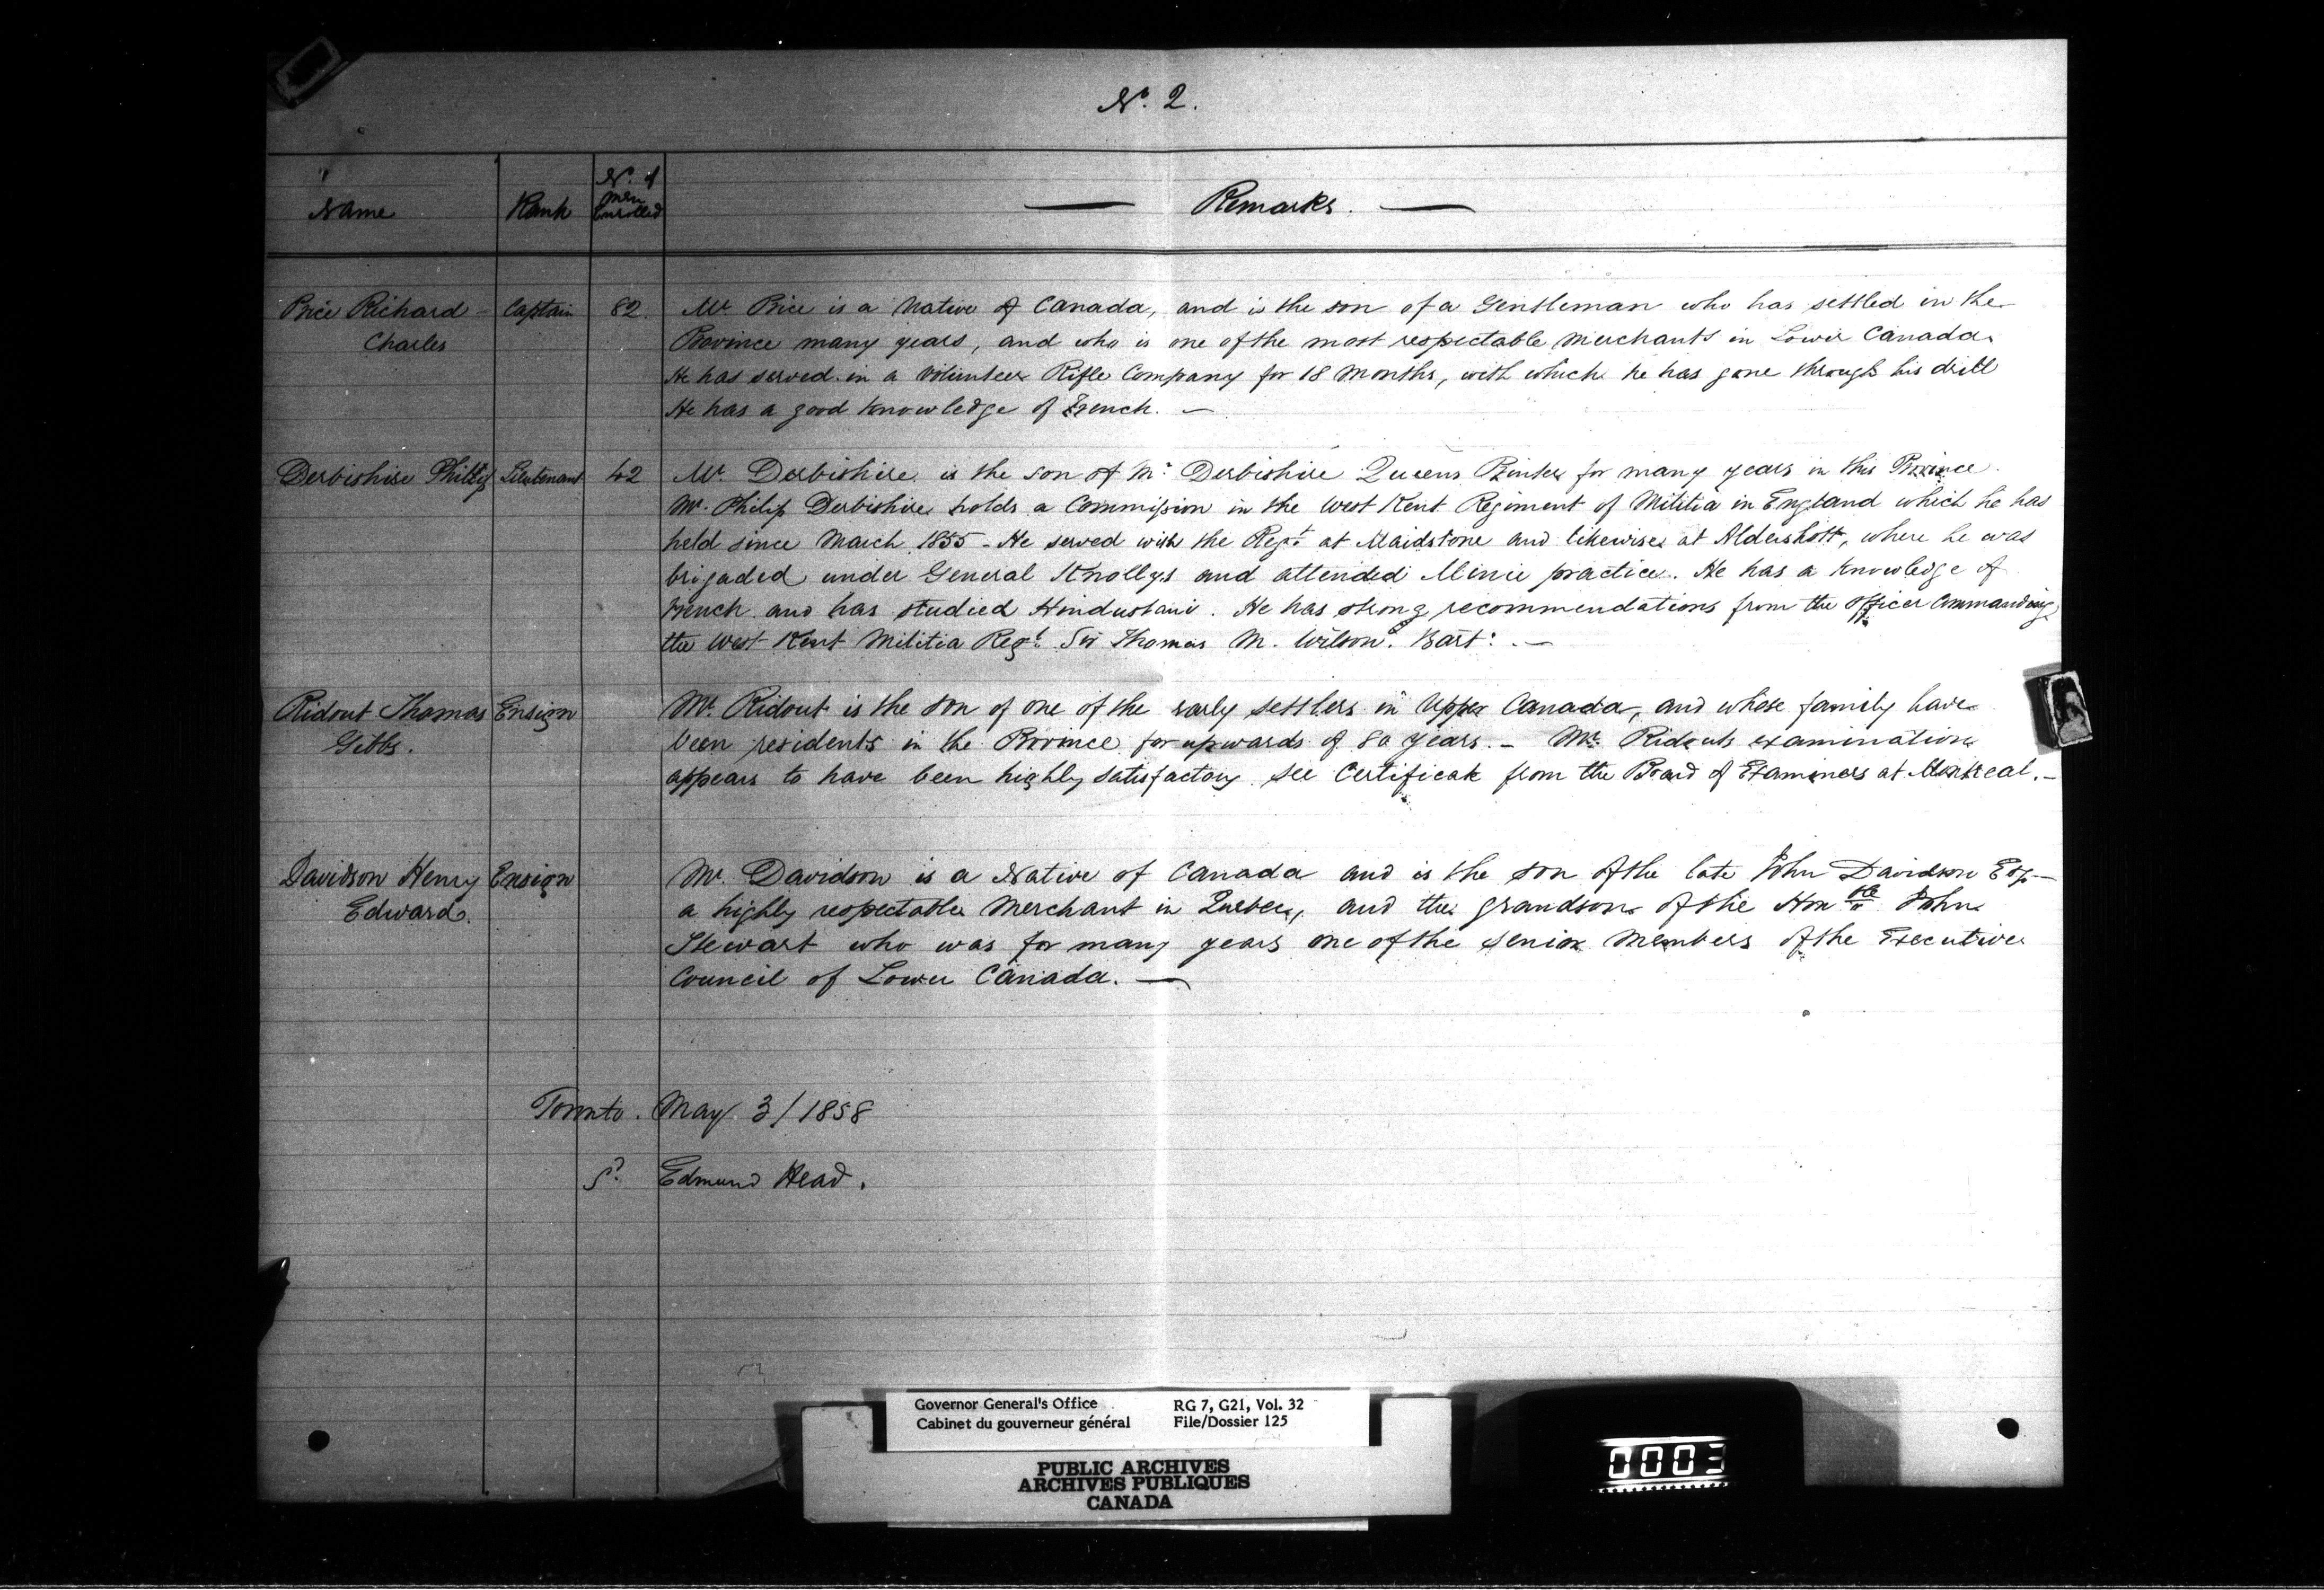 No. 2.
Name
Rank
No. of
Men
Enrolled
Remarks.
Price Richard - Captain 82. Mr. Price is a Native of Canada, and is the son of a Gentleman who has settled in the
Charles Province many years, and who is one of the most respectable Merchants in Lower Canada.
He has served in a Volunteer Rifle Company for 18 Months, with which he has gone through his drill
He has a good knowledge of French. —
Derbishire Philip Lieutenant 42 Mr. Derbishire is the son of Mr. Derbishire Queens Printer for many years in this Province.
Mr. Philip Derbishire holds a Commission in the West Kent Regiment of Militia in England which he has
held since March 1855 - He served with the Regt. at Maidstone and likewise at Aldershott, where he was
brigaded under General Knollys and attended Minie practice. He has a knowledge of
French and has studied Hindustani. He has strong recommendations from the Officer Commanding
the West Kent Militia Regt. Sir Thomas M. Wilson. Bart: . —
Ridout Thomas Ensign Mr. Ridout is the son of one of the early settlers in Upper Canada, and whose family have
Gibbs. been residents in the Province for upwards of 80 years. - Mr. Ridouts examination
appears to have been highly satisfactory. see Certificate from the Board of Examiners at Montreal. -
Davidson Henry Ensign Mr. Davidson is a Native of Canada and is the son of the late John Davidson Esq -
Edward. a highly respectable Merchant in Quebec, and the grandson of the Honble John
Stewart who was for many years one of the senior Members of the Executive
Council of Lower Canada. —
Toronto. May 3/1858
Sd. Edmund Head.
Governor General's Office RG 7, G21, Vol. 32
Cabinet du gouverneur général File/Dossier 125
PUBLIC ARCHIVES
ARCHIVES PUBLIQUES
CANADA
0003